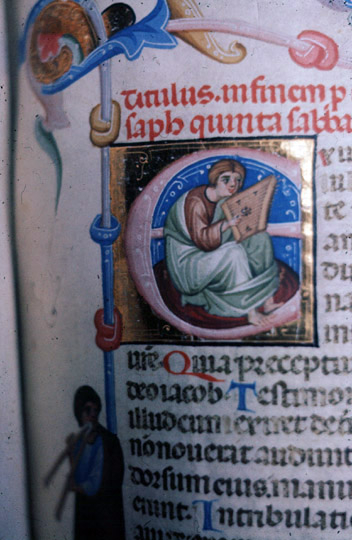 titulus. in finem p
saph quinta sabba
te
du
Quia preceptu
deo iacob. Testimo
illud cum exiret de
nōnouerat audiuit
dorsum eius. manu
erunt. In tribulati